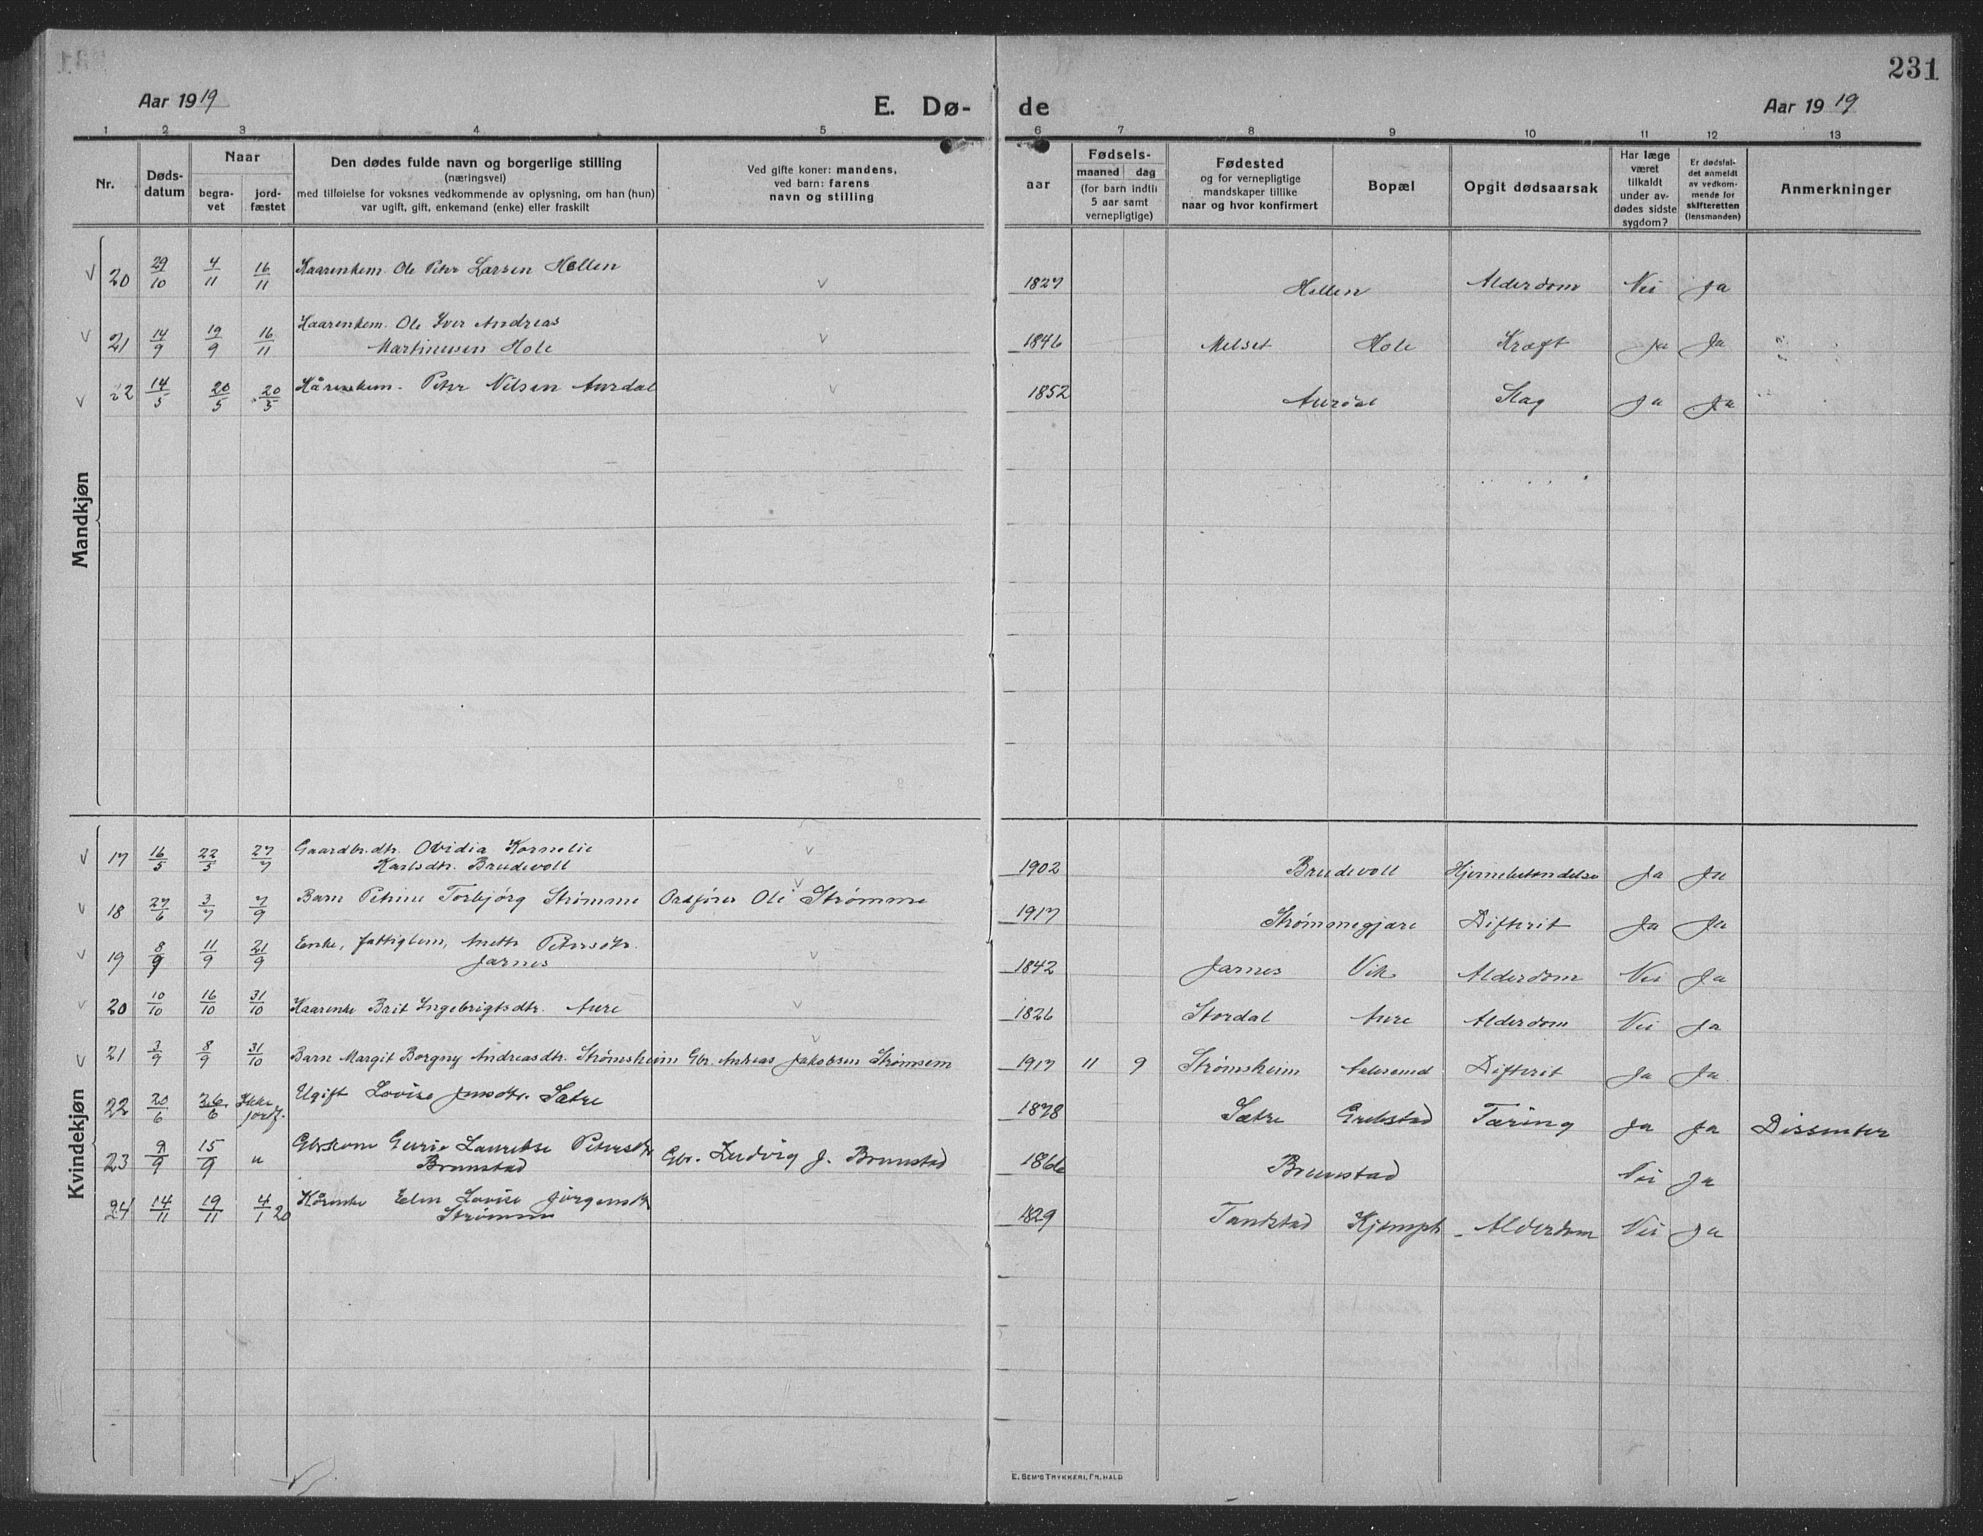 231
Aar 1919
E. Dø-
de
Aar 1919
1 2 3 4 5 6 7 8 9 10 11 12 13
Nr.
Døds-
datum
Naar
begra-
vet
jord-
fæstet
Den dødes fulde navn og borgerlige stilling
(næringsvei)
med tilføielse for voksnes vedkommende av oplysning, om han (hun)
var ugift, gift, enkemand (enke) eller fraskilt
Ved gifte koner: mandens,
ved barn: farens
navn og stilling
aar
Fødsels-
maaned dag
(for barn indtil
5 aar samt
vernepligtige)
Fødested
og for vernepligtige
mandskaper tillike
naar og hvor konfirmert
Bopæl
Opgit dødsaarsak
Har læge
været
tilkaldt
under av-
dødes sidste
sygdom?
Er dødsfal-
det anmeldt
av vedkom-
mende for
skifteretten
(lensmanden)
Anmerkninger
Mandkjøn
20 29/10 4/11 16/11 Kaarenkem. Ole Petr Larsen Hellen 1827 Hellen Alderdom Nei Ja
21 14/9 19/9 16/11 Kaarenkem. Ole Iver Andreas
Martinusen Hole 1846 Melset Hole Kræft Ja Ja
22 14/5 20/5 20/5 Kårenkem. Petr Nilsen Aurdal 1852 Aurdal Slag Ja Ja
Kvindekjøn
17 16/5 22/5 27/7 Gaardbr.dtr. Ovidia Kornelie
Karlsdtr. Brudevoll 1902 Brudevoll Hjernebetændelse Ja Ja
18 27/6 3/7 7/9 Barn Petrine Torbjørg Strømme Ordfører Ole Strømme 1917 Strømmegjære Difterit Ja Ja
19 8/9 11/9 21/9 Enke, fattiglem, Anette Petersdtr.
Jarnes 1842 Jarnes Vik Alderdom Nei Ja
20 10/10 16/10 31/10 Kaarenke Brit Ingebrigtsdtr. Aure 1826 Stordal Aure Alderdom Nei Ja
21 3/9 8/9 31/10 Barn Margit Borgny Andreasdtr. Strømsheim Gbr. Andreas Jakobsen Strømsem 1917 11 9 Strømsheim Aalesund Difterit Ja Ja
22 20/6 26/6 Ikke
jordf. Ugift Lovise Jensdtr. Sætre 1878 Sætre Grebstad Tæring Ja Ja Dissenter
23 9/9 15/9 " Gbrkone Gurie Lauretse Petersdtr
Brunstad Gbr. Ludvig J. Brunstad 1866 Brunstad Nei Ja
24 14/11 19/11 4/1 20 Kårenke Elen Lovise Jørgensdtr
Strømme 1829 Tandstad Kjemph. Alderdom Nei Ja
E. SEM'S TRYKKERI, FR.HALD